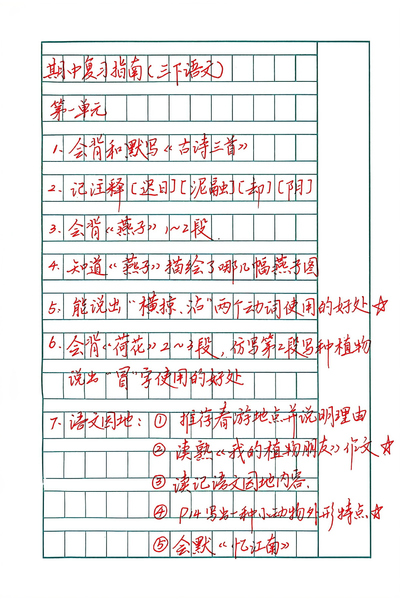 期中复习指南(三下语文)
第一单元
1. 会背和默写《古诗三首》
2. 记注释[迟日][泥融][却][阴]
3. 会背《燕子》1~2段.
4. 知道《燕子》描绘了哪几幅燕子图
5. 能说出"横掠、沾"两个动词使用的好处☆
6. 会背《荷花》2~3段，仿写第2段写种植物
说出"冒"字使用的好处
7. 语文园地：① 推荐春游地点并说明理由
② 读熟《我的植物朋友》作文☆
③ 读记语文园地内容.
④ P14写出一种小动物外形特点☆
⑤ 会默《忆江南》